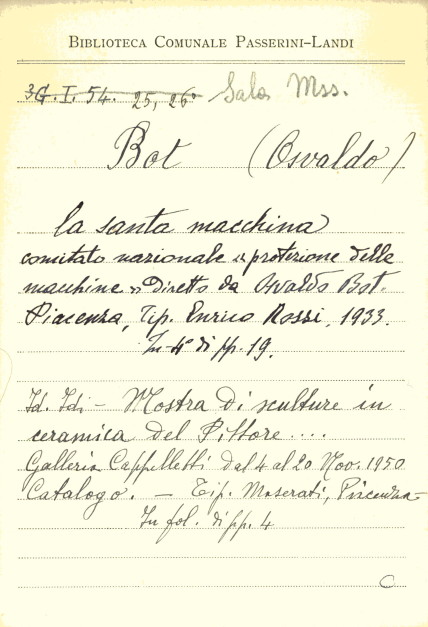 BIBLIOTECA COMUNALE PASSERINI-LANDI
3G. I. 54. 25, 26° Sala Mss.
Bot (Osvaldo)
La santa macchina
comitato nazionale « protezione delle
macchine » Diretto da Osvaldo Bot.
Piacenza, Tip. Enrico Rossi, 1933.
In-4° di pp. 19.
Id. Idi - Mostra Di sculture in
ceramica del Pittore ....
Galleria Cappelletti dal 4 al 20 Nov. 1950
Catalogo. - Tip. Maserati, Piacenza-
In fol. di pp. 4
C